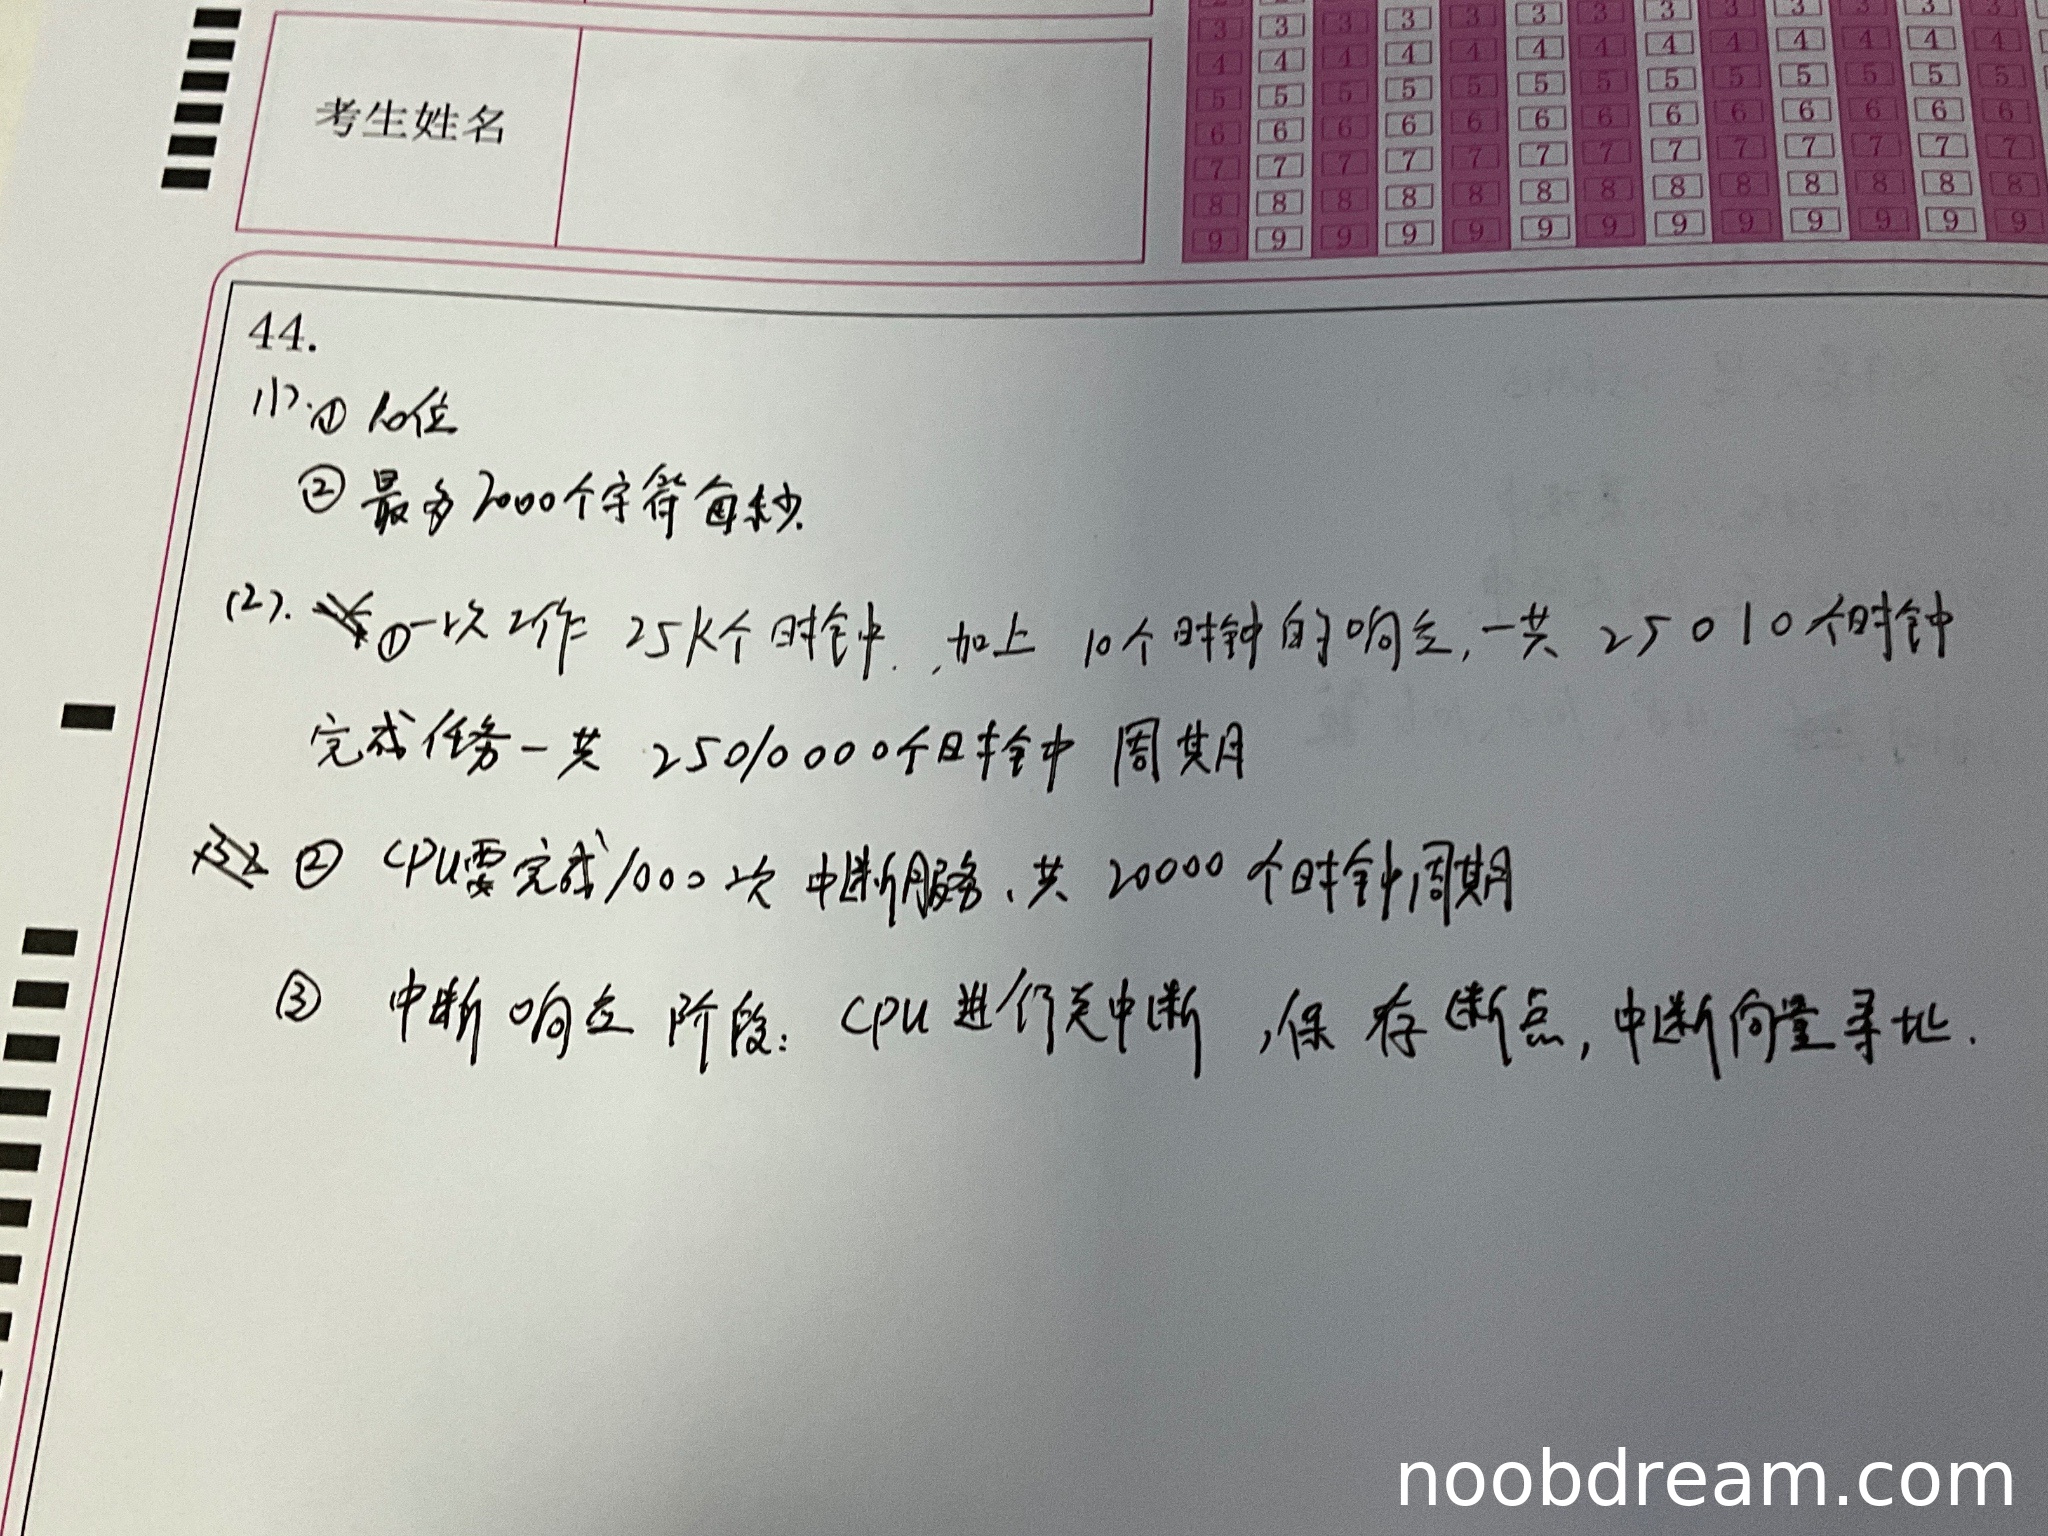 3 3 3 3 3 3 3 3 3 3 3 3 3
4 4 4 4 4 4 4 4 4 4 4 4 4
5 5 5 5 5 5 5 5 5 5 5 5 5
6 6 6 6 6 6 6 6 6 6 6 6 6
7 7 7 7 7 7 7 7 7 7 7 7 7
8 8 8 8 8 8 8 8 8 8 8 8 8
9 9 9 9 9 9 9 9 9 9 9 9 9
考生姓名
44.
(1).① 10位
② 最多2000个字符每秒.
(2). ①一次工作 25K个时钟,加上 10个时钟的响应,一共 25010个时钟
完成任务一共 25010000个时钟 周期
② CPU要完成1000次 中断服务,共 20000个时钟周期
③ 中断响应 阶段: CPU进行关中断,保存断点,中断向量寻址.
noobdream.com